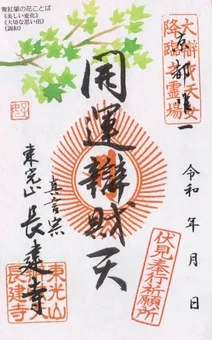 青紅葉の花ことば
《美しい変化》
《大切な思い出》
《調和》
大辯財天女
降臨霊場
京都唯一
開運辯財天
令和 年 月 日
伏見奉行祈願所
真言宗
東光山 長建寺
東光山
長建寺